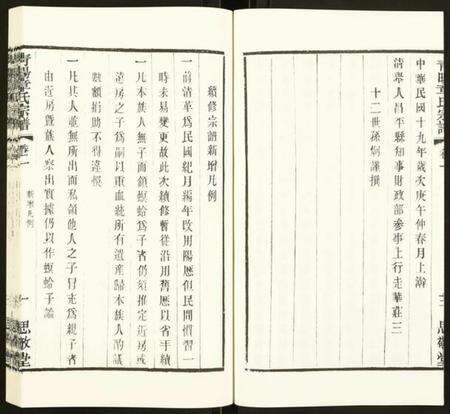 中華民國十九年歲次庚午仲春月上澣
清舉人昌平縣知事財政部參事上行走華莊三
十二世孫炯謹撰
三 思敬堂
續修宗譜新增凡例
一前清革爲民國紀月編年改用陽曆但民間慣習一
時未易變更故此次續修暫從沿用舊曆以省手續
一凡本族人無子而領螟蛉爲子者仍須推定近房或
遠房之子爲嗣以重血統所有遺產歸本族人酌議
數額捐助不得違悞
一凡其人並無所出而私領他人之子冒充爲親子者
由近房暨族人察出實據仍以作螟蛉子論
新增凡例
一 思敬堂